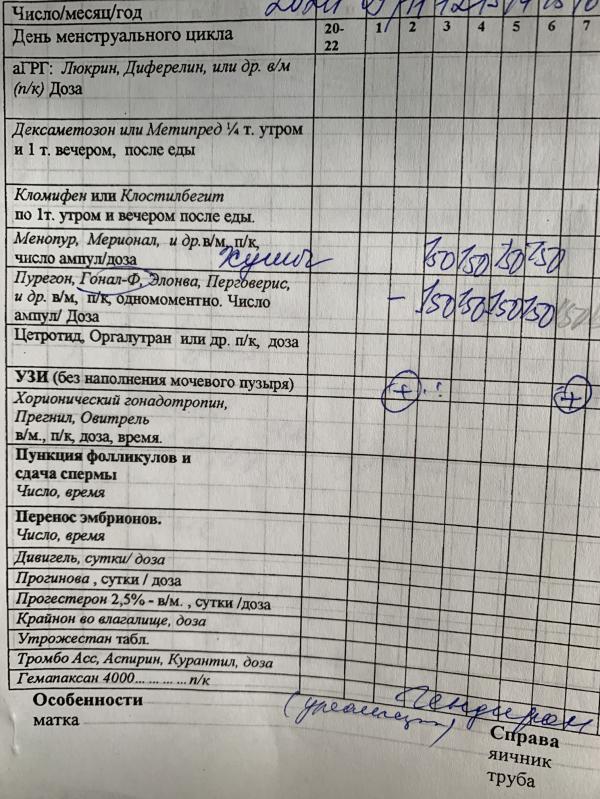 Число/месяц/год
День менструального цикла 20-22 1 2 3 4 5 6 7
аГРГ: Люкрин, Диферелин, или др. в/м
(п/к) Доза
Дексаметозон или Метипред ¼ т. утром
и 1 т. вечером, после еды
Кломифен или Клостилбегит
по 1т. утром и вечером после еды.
Менопур, Мерионал, и др. в/м, п/к,
число ампул/доза 150 150 150 150
Пурегон, Гонал-Ф, Элонва, Перговерис,
и др. в/м, п/к, одномоментно. Число
ампул/ Доза - 150 150 150 150 150
Цетротид, Оргалутран или др. п/к, доза
УЗИ (без наполнения мочевого пузыря) + +
Хорионический гонадотропин,
Прегнил, Овитрель
в/м., п/к, доза, время.
Пункция фолликулов и
сдача спермы
Число, время
Перенос эмбрионов.
Число, время
Дивигель, сутки/ доза
Прогинова , сутки / доза
Прогестерон 2,5% - в/м. , сутки /доза
Крайнон во влагалище, доза
Утрожестан табл.
Тромбо Асс, Аспирин, Курантил, доза
Гемапаксан 4000... ... ... ... п/к
Особенности
матка
Справа
яичник
труба